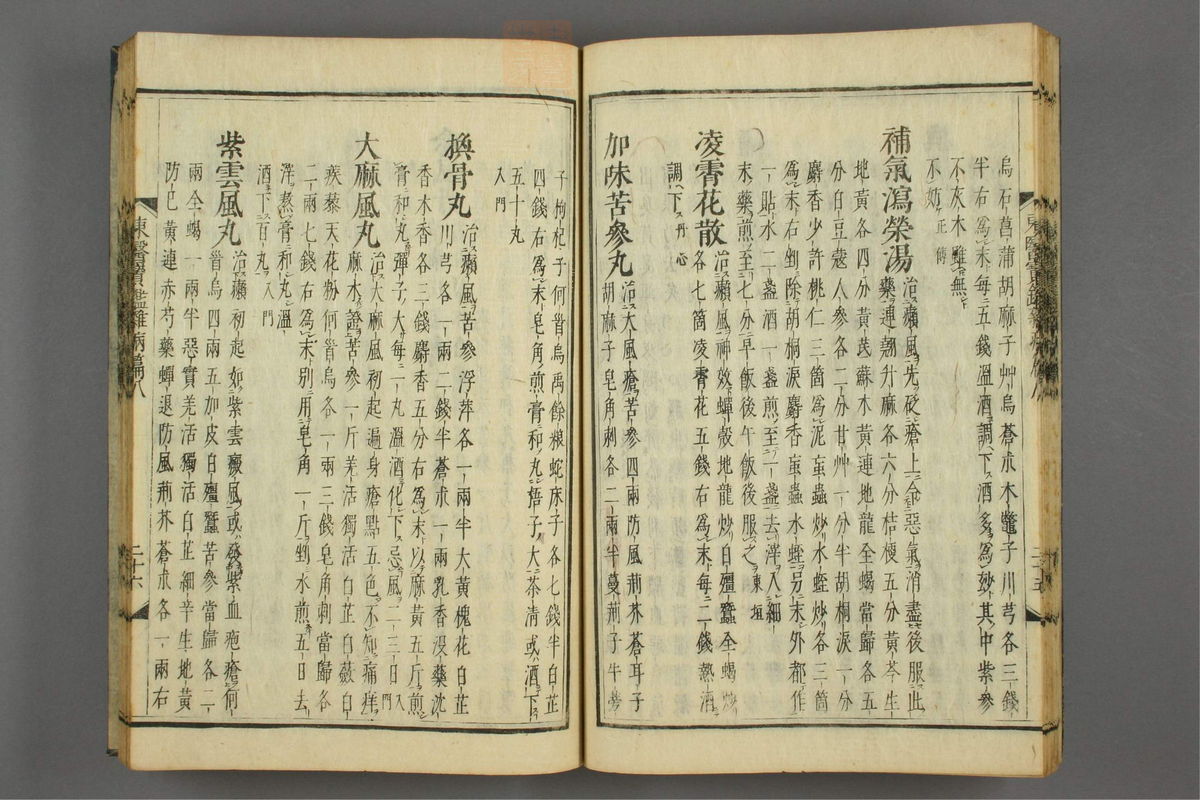 烏石菖蒲胡麻子艸烏蒼朮木鼈子川芎各三錢
半右爲末每五錢溫酒調下酒多爲妙其中紫參
不灰木雖無
不妨 正傳
補氣瀉榮湯 治癩風先砭瘡上令惡氣消盡後服此
藥連翹升麻各六分桔梗五分黃芩生
地黃各四分黃芪蘇木黃連地龍全蝎當歸各五
分白豆蔲人參各二分甘艸一分半胡桐淚一分
麝香少許桃仁三箇爲泥䖟蟲炒水蛭炒各三箇
爲末右剉除胡桐淚麝香䖟蟲水蛭另末外都作
一貼水二盞酒一盞煎至一盞去滓入細
末藥煎至七分早飯後午飯後服之 東垣
凌霄花散 治癩風神效蟬殼地龍炒白殭蠶全蝎炒
各七箇凌霄花五錢右爲末每二錢熱酒
調下 丹心
加味苦參丸 治大風瘡苦參四兩防風荊芥蒼耳子
胡麻子皂角刺各二兩半蔓荊子牛蒡
子枸杞子何首烏禹餘粮蛇床子各七錢半白芷
四錢右爲末皂角煎膏和丸梧子大茶清或酒下
五十丸
入門
換骨丸 治癩風苦參浮萍各一兩半大黃槐花白芷
川芎各一兩二錢半蒼朮一兩乳香沒藥沈
香木香各三錢麝香五分右爲末以麻黃五斤煎
膏和丸彈子大每一丸溫酒化下忌風二三日 入門
大麻風丸 治大麻風初起遍身瘡點五色不知痛痒
麻木證苦參一斤羌活獨活白芷白蘞白
疾藜天花粉何首烏各一兩三錢皂角刺當歸各
二兩七錢右爲末別用皂角一斤剉水煎五日去
滓熬膏和丸溫
酒下百丸 入門
紫雲風丸 治癩初起如紫雲癜風或發紫血疱瘡何
首烏四兩五加皮白殭蠶苦參當歸各二
兩全蝎一兩半惡實羌活獨活白芷細辛生地黃
防已黃連赤芍藥蟬退防風荊芥蒼朮各一兩右
東醫寶鑑雜病篇八
二十六